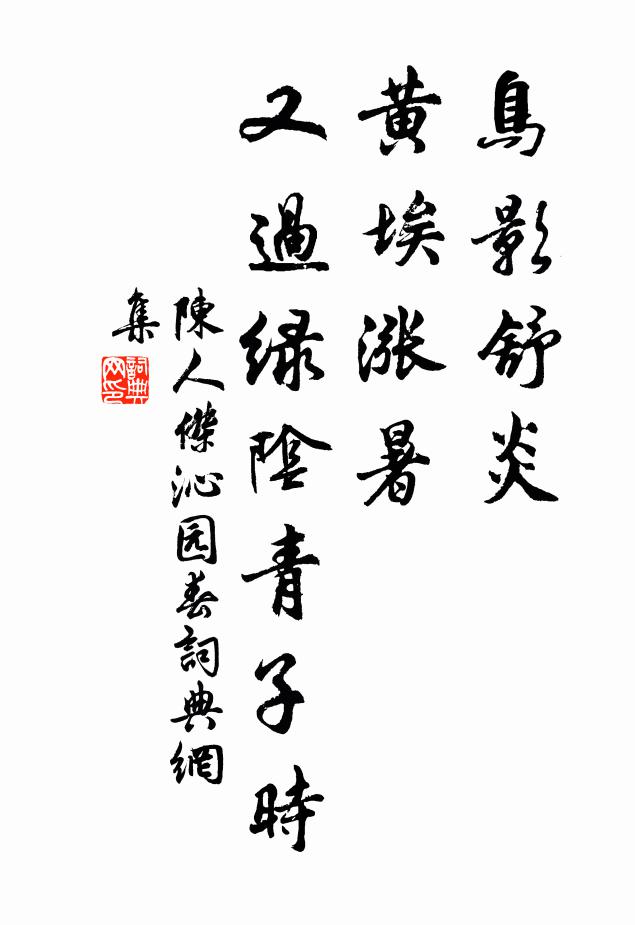 烏影舒炎
黃埃漲暑
又過绿陰青子時
陳人傑沁园春詞典網
集
詞典网印